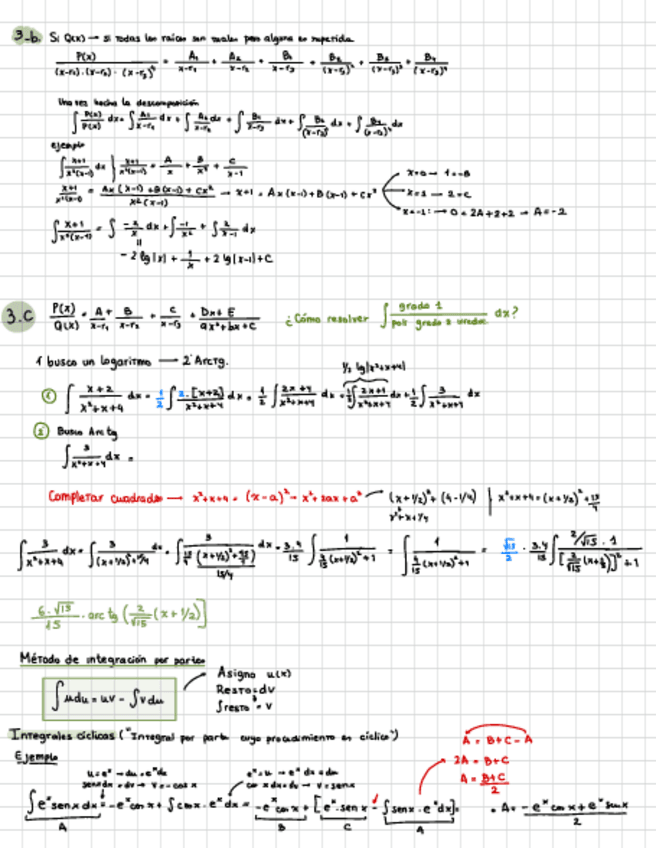 3-b. Si Q(x) → si todas las raíces son reales pero alguna es repetida
P(x)/((x-r₁)·(x-r₂)·(x-r₃)⁴) = A₁/(x-r₁) + A₂/(x-r₂) + B₁/(x-r₃) + B₂/(x-r₃)² + B₃/(x-r₃)³ + B₄/(x-r₃)⁴
Una vez hecha la descomposición
ejemplo
∫ (x+1)/(x²(x-1)) dx | (x+1)/(x²(x-1)) = A/x + B/x² + C/(x-1)
(x+1)/(x²(x-1)) = (Ax(x-1)+B(x-1)+Cx²)/(x²(x-1)) → x+1 = Ax(x-1)+B(x-1)+Cx²
x=0 → 1=-B
x=1 → 2=C
x=-1: → 0=2A+2+2 → A=-2
∫ (x+1)/(x²(x-1)) = ∫ -2/x dx + ∫ -1/x² + ∫ 2/(x-1) dx
-2 lg|x| + 1/x + 2 lg|x-1| + C
3.C P(x)/Q(x) = A/(x-r₁) + B/(x-r₂) + C/(x-r₃) + (Dx+E)/(ax²+bx+c) ¿Cómo resolver ∫ grado 1/(pol grado 2 irreduc) dx?
1 busco un logaritmo → 2 Arctg.
½ lg|x²+x+4|
① ∫ (x+2)/(x²+x+4) dx = 1/2 ∫ 2·[x+2]/(x²+x+4) dx = 1/2 ∫ (2x+4)/(x²+x+4) dx = 1/2 ∫ (2x+1)/(x²+x+4) dx + 1/2 ∫ 3/(x²+x+4) dx
② Busco Arctg
∫ 3/(x²+x+4) dx =
Completar cuadrados → x²+x+4 = (x-a)² = x²+2ax+a² (x+1/2)²+(4-1/4) | x²+x+4=(x+1/2)²+15/4
x²+x+1/4
∫ 3/(x²+x+4) dx = ∫ 3/((x+1/2)²+15/4) dx = ∫ 3/(15/4 ((x+1/2)²+15/4)/(15/4)) dx = 3·4/15 ∫ 1/(4/15 (x+1/2)²+1) = ∫ 1/(4/15 (x+1/2)²+1) = √15/2 · 3·4/15 ∫ (2/√15 · 1)/([2/√15 (x+½)]²+1)
6·√15/15 · arc tg (2/√15 (x+1/2)]
Método de integración por partes
∫ u du = uv - ∫ v du
Asigno u(x)
Resto=dv
∫resto = v
Integrales cíclicas ("Integral por parte cuyo procedimiento es cíclico")
Ejemplo
A = B+C-A
2A = B+C
A = (B+C)/2
u=eˣ → du=eˣdx
senxdx=dv → v=-cosx
eˣ=u → eˣdx=du
cosxdx=dv → v=senx
∫ eˣ senx dx = -eˣ cosx + ∫ cosx·eˣ dx = -eˣ cosx + [eˣ·senx - ∫ senx·eˣ dx] = · A = (-eˣ cosx+eˣ senx)/2
A B C A